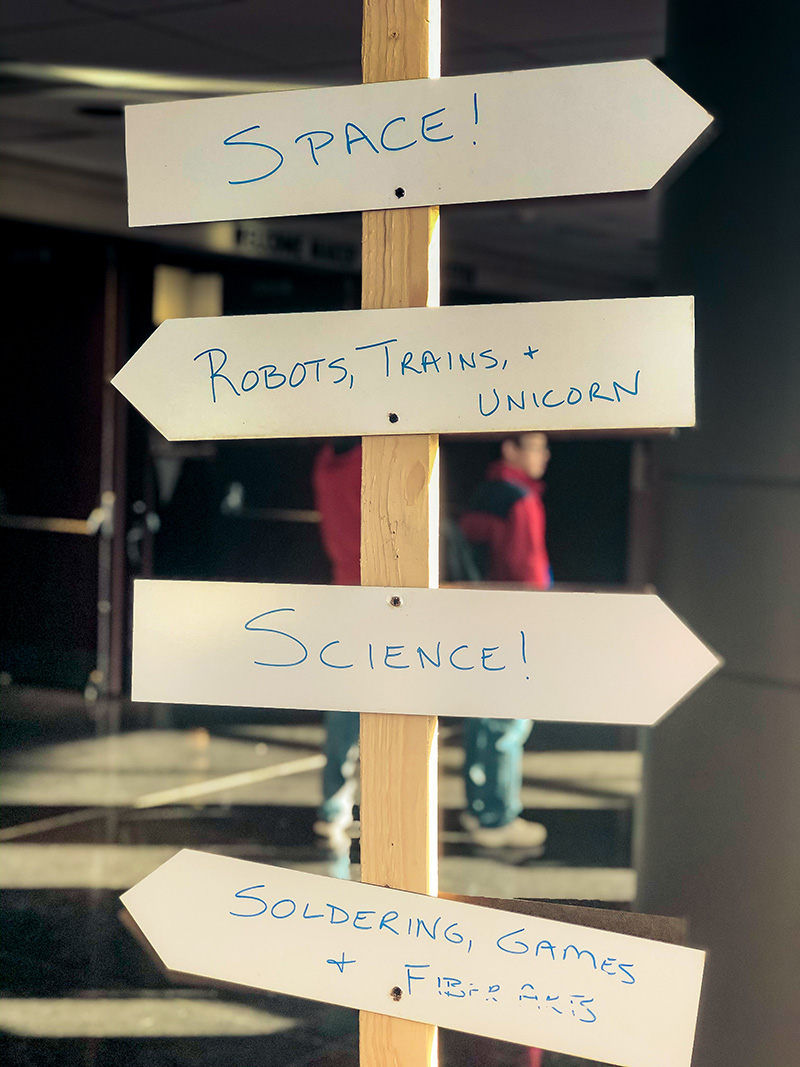 SPACE!
ROBOTS, TRAINS, +
UNICORN
SCIENCE!
SOLDERING, GAMES
+ FIBER ARTS